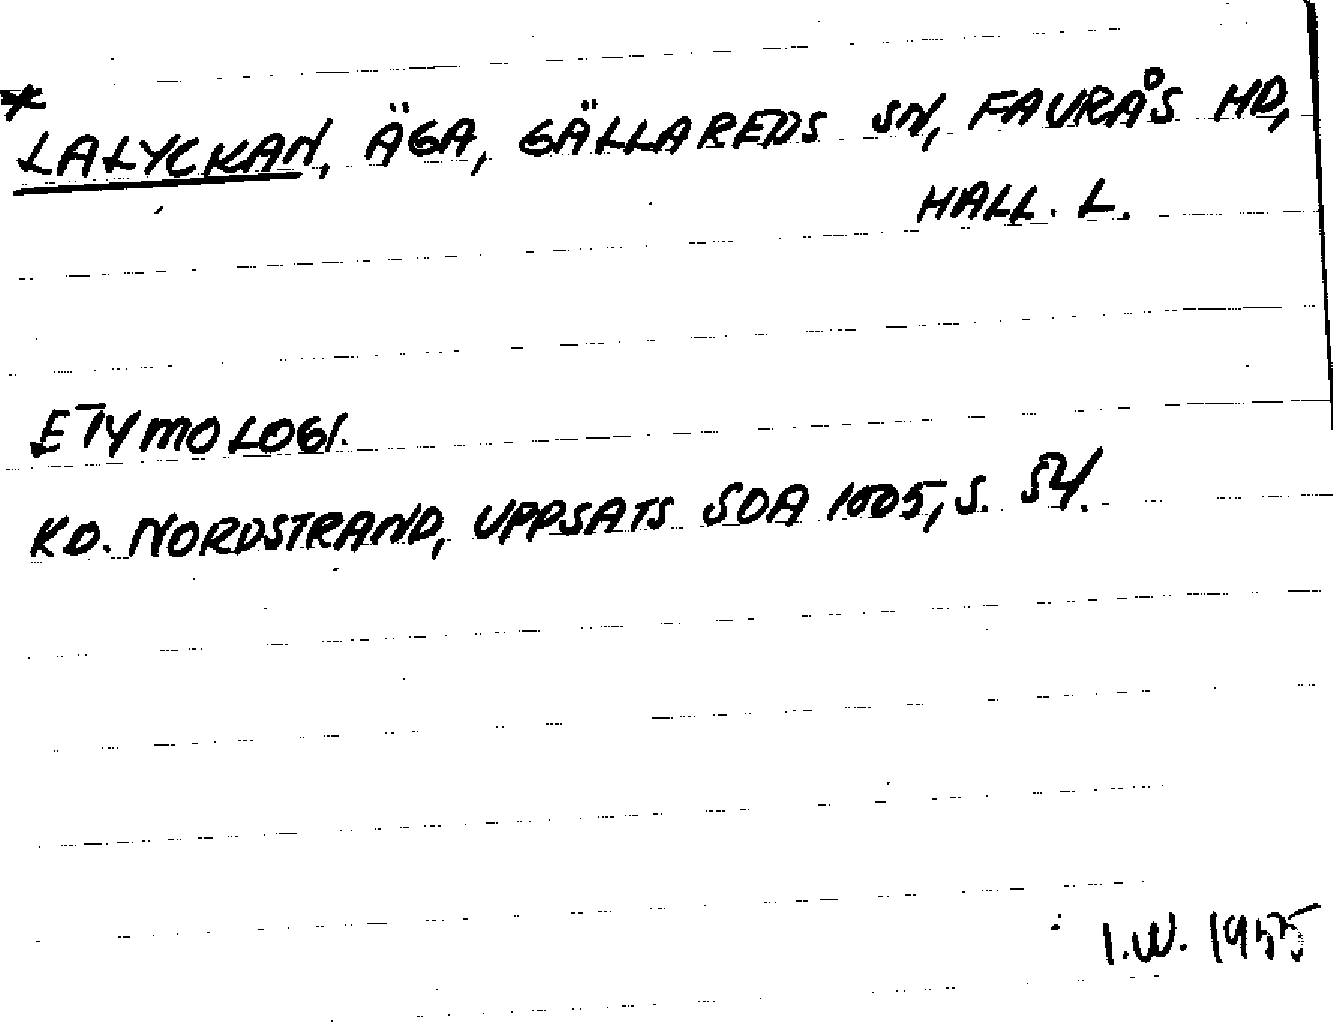 * LALYCKAN, ÄGA, GÄLLAREDS SN, FAURÅS HD,
HALL. L.
ETYMOLOGI.
KD. NORDSTRAND, UPPSATS SOA 1005, S. 54.
I.W. 1955